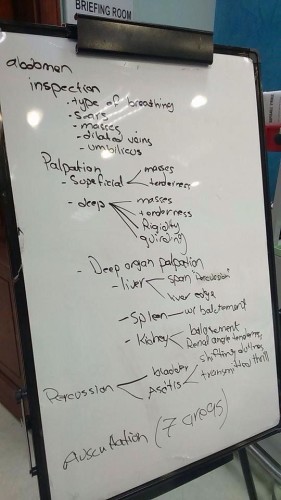 BRIEFING ROOM
abdomen
inspection
- type of breathing
- scars
- masses
- dilated veins
- umbilicus
Palpation
- Superficial masses
tenderness
- deep masses
tonderness
Rigidity
guirding
- Deep organ palpation
- liver span "Percussion"
liver edge
- Spleen - w/ balotement
- Kidney balotement
Renal angle tenderness
Percussion bladder
Ascitis shifting dullness
transmitted thrill
Auscultation (7 areas)